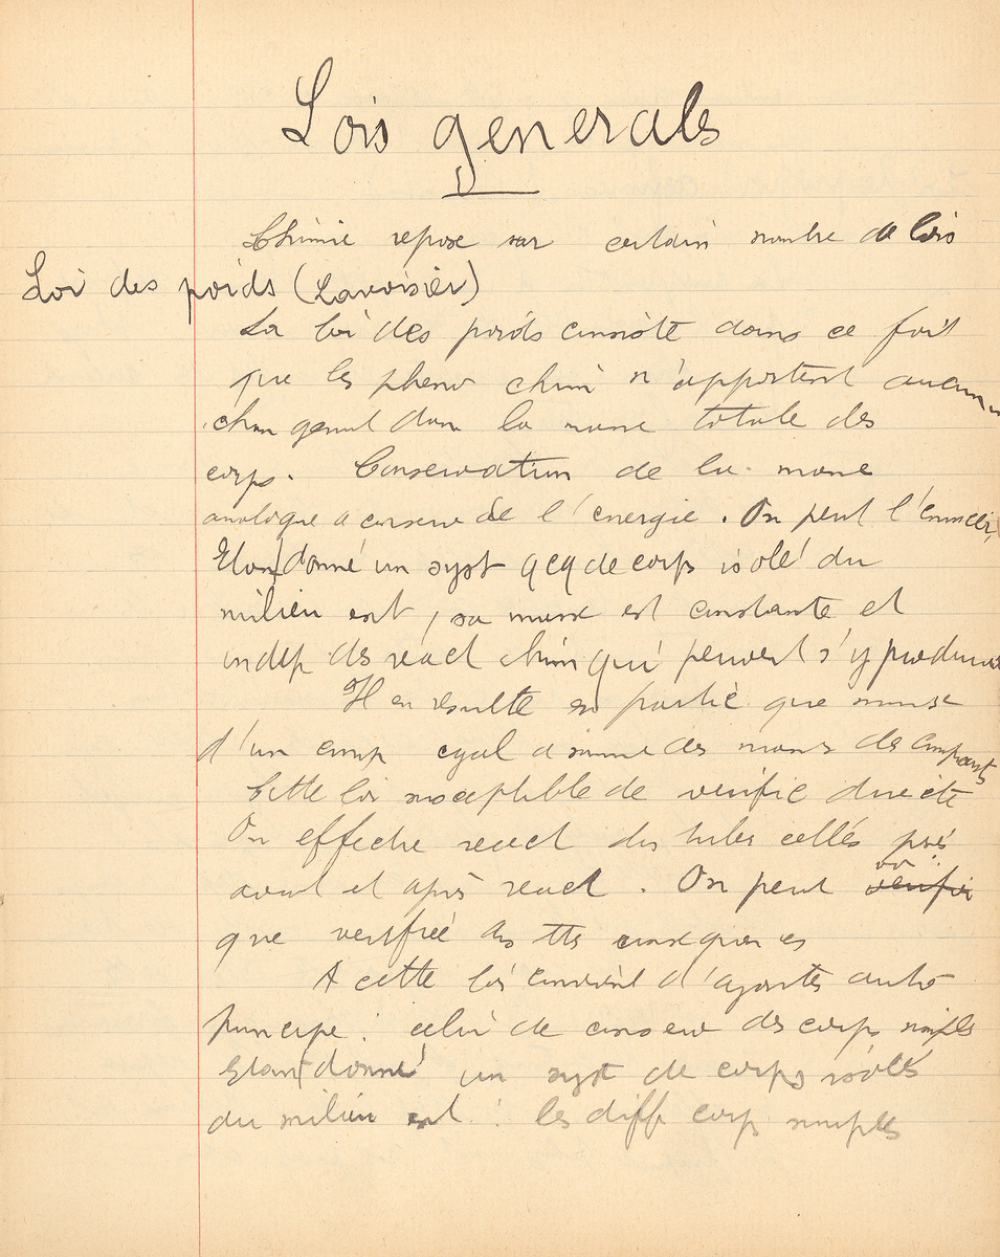 Lois generales
Chimie repose sur certain nombre de lois
Loi des poids (Lavoisier)
La loi des poids consiste dans ce fait
que les pheno chimi n'apportent aucun
changement dans la masse totale des
corps. Conservation de la masse
analogue a conserv de l'energie. On peut l'enoncer
Etant donné un syst qcq de corps isolé du
milieu ext, sa masse est constante et
indep des react chim qui peuvent s'y produire
Il en resulte en partic que masse
d'un comp egal a somme des masses des composants
Cette loi susceptible de verific directe
On effectue react ds tubes cellés pesés
avant et après react. On peut verifier
que verifiée ds ttes consequences
A cette loi convient d'ajouter autre
principe : celui de conserv des corps simples
Etant donné un syst de corps isolés
du milieu ext : les diff corps simples